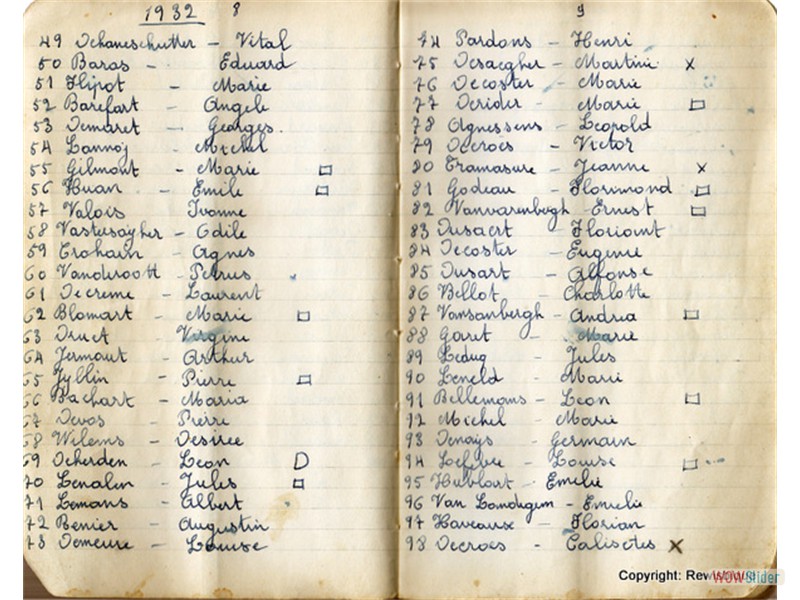 1932 8
49 Dchaneschutter - Vital
50 Baras - Eduard
51 Flipot - Marie
52 Barefart - Angele
53 Demaret - Georges.
54 Lannoj - Michel
55 Gilmont - Marie
56 Huan - Emile
57 Valois Ivonne
58 Vastersaegher - Odile
59 Crohain - Agnes
60 Vanderoott - Petrus
61 Decreme - Laurent
62 Blomart - Marie
63 Druet - Virgine
64 Jermaut - Arthur
65 Jyllin - Pierre
66 Bachart - Maria
67 Devos - Pierre
68 Wilems - Desiree
69 Dcherden - Leon
70 Lenalen - Jules
71 Lemans - Albert
72 Benier - Augustin
73 Demeure - Louise
9
74 Pardons - Henri
75 Desaegher - Martine x
76 Decoster - Marie
77 Derider - Marie
78 Agnessens - Leopold
79 Decroes - Victor
80 Framasure - Jeanne x
81 Godeau - Florimond
82 Vanvarenbergh - Ernest
83 Dusaert - Floriant
84 Decoster - Eugenie
85 Dusart - Alfonse
86 Bellot - Charlotte
87 Vansanbergh - Andria
88 Garet - Marie
89 Leduq - Jules
90 Leneld - Marie
91 Bellemans - Leon
92 Michel - Marie
93 Denays - Germain
94 Loefebre - Louise
95 Hublart - Emelie
96 Van Lamdegem - Emielie
97 Haveaux - Florian
98 Decroes - Calisetes x
Copyright:
WOWSlider